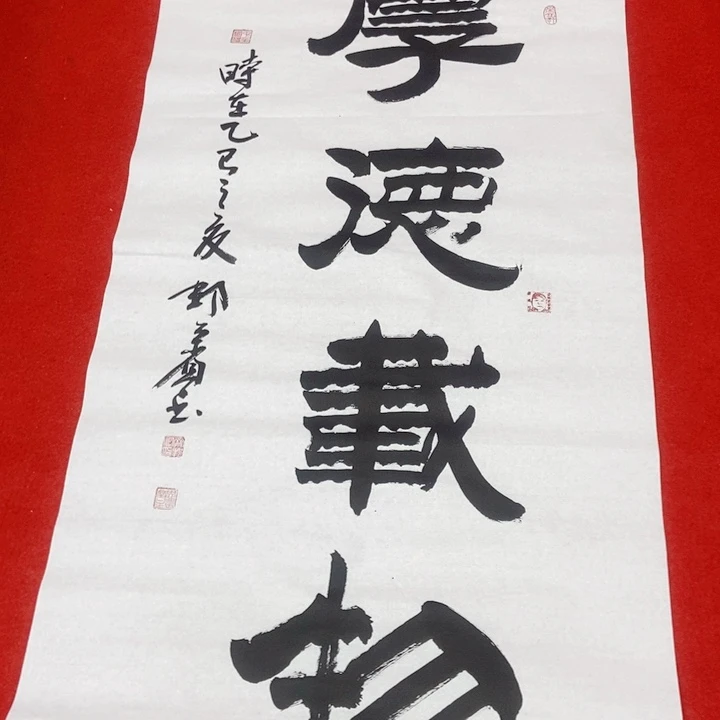 厚德載物
時在乙巳之夏 郭